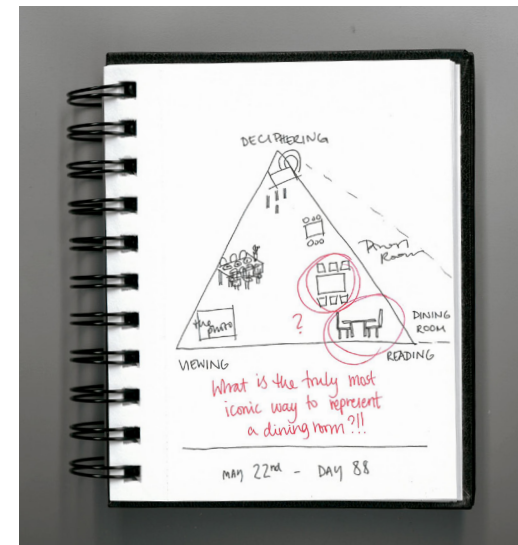 DECIPHERING
Dining
Room
?
the
photo
DINING
ROOM
VIEWING
READING
What is the truly most
iconic way to represent
a dining room?!!
MAY 22nd - DAY 88